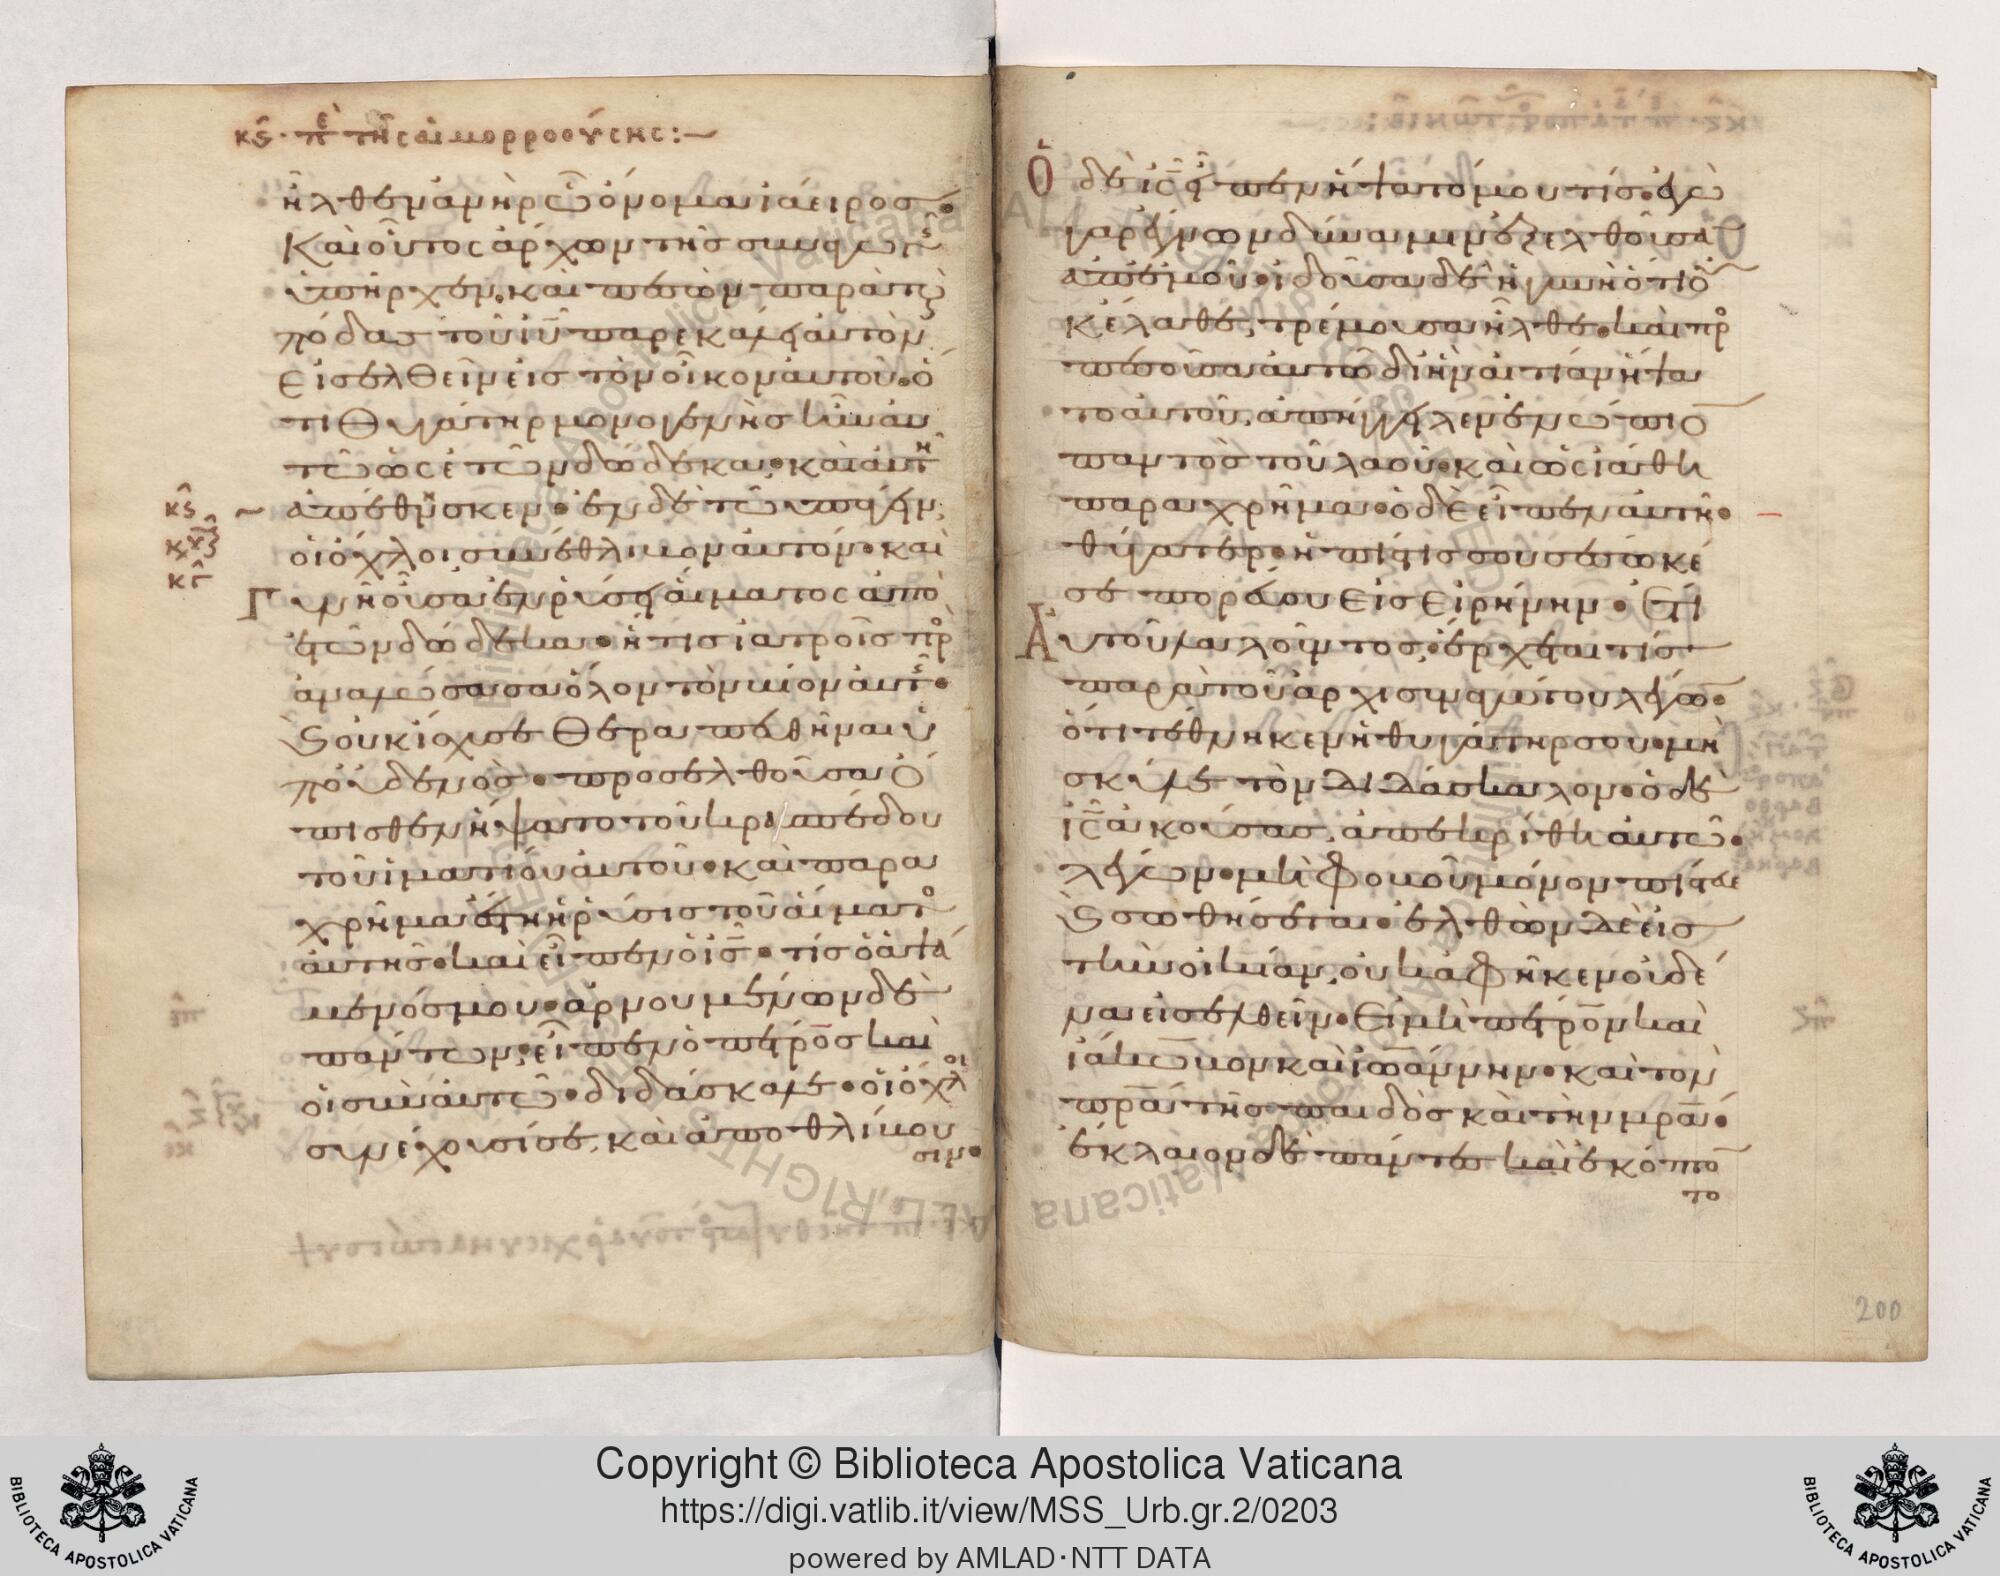 κϛ· πε τῆς αἱμορροούσης:—
ἦλθεν ἀνὴρ ὧ ὄνομα ἰάειρος·
Καὶ οὗτος ἄρχων τῆς συναγωγῆς
ὑπῆρχεν· καὶ πεσὼν παρὰ τοὺς
πόδας τοῦ ἰῦ παρεκάλει αὐτὸν
εἰσελθεῖν εἰς τὸν οἶκον αὐτοῦ· ὅ
τι θυγάτηρ μονογενὴς ἦν αὐ
τῶ ὡς ἐτῶν δώδεκα· καὶ αὐτὴ
ἀπέθνησκεν· ἐν δὲ τῶ ὑπάγειν
οἱ ὄχλοι συνέθλιβον αὐτόν· καὶ
Γυνὴ οὖσα ἐν ῥύσει αἵματος ἀπὸ
ἐτῶν δώδεκα· ἥτις ἰατροῖς προσ
αναλώσασα ὅλον τὸν βίον αὐτῆς·
οὐκ ἴσχυσε θεραπευθῆναι ὑ
π' οὐδενὸς· προσελθοῦσα ὄ
πισθεν ἥψατο τοῦ κρασπέδου
τοῦ ἱματίου αὐτοῦ· καὶ παρα
χρῆμα ἔστη ἡ ῥύσις τοῦ αἵματος
αὐτῆς· καὶ εἶπεν ὁ ἰς· τίς ὁ ἁψά
μενός μου· ἀρνουμένων δὲ
πάντων, εἶπεν ὁ πέτρος καὶ
οἱ σὺν αὐτῶ· διδάσκαλε· οἱ ὄχλοι
συνέχουσί σε, καὶ ἀποθλίβου
σιν·
κϛ
κγ
Ὁ δὲ ἰς εἶπεν ἥψατό μου τίς· ἐγὼ
γὰρ ἔγνων δύναμιν ἐξελθοῦσαν
ἀπ' ἐμοῦ· ἰδοῦσα δὲ ἡ γυνὴ ὅτι οὐ
κ ἔλαθε, τρέμουσα ἦλθε· καὶ προσ
πεσοῦσα αὐτῶ δι ἣν αἰτίαν ἥψα
το αὐτοῦ, ἀπήγγειλεν ἐνώπιον
παντὸς τοῦ λαοῦ· καὶ ὡς ἰάθη
παραχρῆμα· ὁ δὲ εἶπεν αὐτῆ·
θύγατερ· ἡ πίστις σου σέσωκέ
σε πορεύου εἰς εἰρήνην· ἔτι
Αὐτοῦ λαλοῦντος, ἔρχεταί τις
παρὰ τοῦ ἀρχισυναγώγου λέγων·
ὅτι τέθνηκεν ἡ θυγάτηρ σου· μὴ
σκύλλε τὸν διδάσκαλον· ὁ δὲ
ἰς ἀκούσας, ἀπεκρίθη αὐτῶ·
λέγων· μὴ φοβοῦ μόνον πίστευε
σωθήσεται· ἐλθὼν δὲ εἰς
τὴν οἰκίαν, οὐκ ἀφῆκεν οὐδέ
να εἰσελθεῖν· εἰ μὴ πέτρον καὶ
ἰάκωβον καὶ ἰωάννην· καὶ τὸν
πρα τῆς παιδὸς καὶ τὴν μρα·
ἔκλαιον δὲ πάντες καὶ ἐκόπτον
το
200
Copyright © Biblioteca Apostolica Vaticana
https://digi.vatlib.it/view/MSS_Urb.gr.2/0203
powered by AMLAD·NTT DATA
BIBLIOTECA APOSTOLICA VATICANA
BIBLIOTECA APOSTOLICA VATICANA